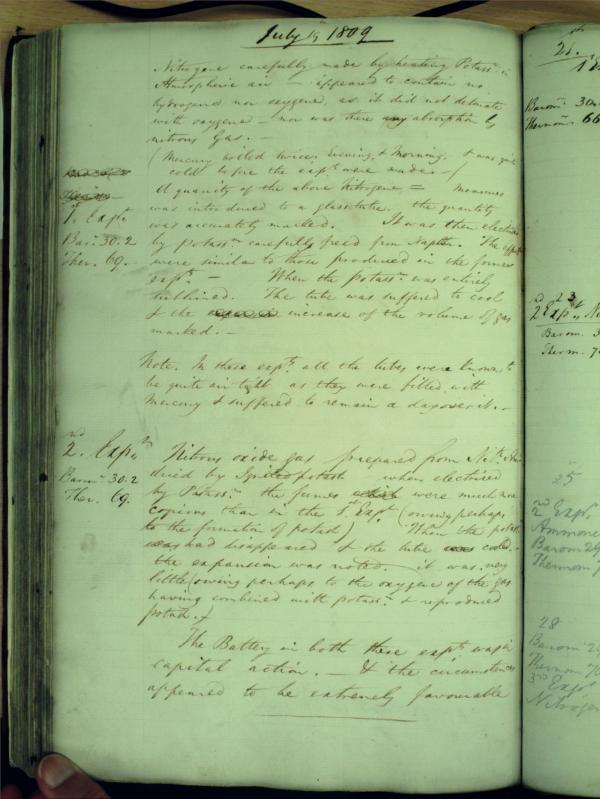 July 19 1809
Nitrogene carefully made by heating Potassm in
Atmospheric air — appeared to contain no
hydrogene nor oxygene, as it did not detonate
with oxygene — nor was there any absorption by
nitrous Gas. —
(Mercury boiled twice, Evening & Morning & was quite
cold before the expts were made. —)
A quantity of the above Nitrogene = measures
was introduced to a glass tube. the quantity
1st Expt was accurately marked. It was then electrised
Bar. 30.2 by potassm carefully freed from Naptha. The effects
Ther. 69. were similar to those produced in the former
expts — When the potassm was entirely
sublimed. The tube was suffered to cool
& the increase of the volume of gas
marked. —
Note. In these expts all the tubes were known to
be quite air tight as they were filled with
Mercury & suffered to remain a day over it. —
2nd Expt Nitrous oxide gas prepared from Nit. Am
dried by Ignited potash when electrised
Barom 30.2 by Potassm the fumes which were much more
Ther. 69. copious than in the 1st Expt (owing perhaps
to the formation of potash) When the potassm
had disappeared & the tube was cooled.
the expansion was noted. — it was very
little (owing perhaps to the oxygene of the gas
having combined with potassm & reproduced
potash.)
The Battery in both these expts was in
capital action. — & the circumstances
appeared to be extremely favourable
21.
Barom. 30.
Thermom. 66
23
2nd Expt. Ni
Barom. 3
Therm. 7
25
2nd Expt
Ammon
Barom 29
Thermom 7
28
Barom 29
Thermom 70
3rd Expt
Nitrogen